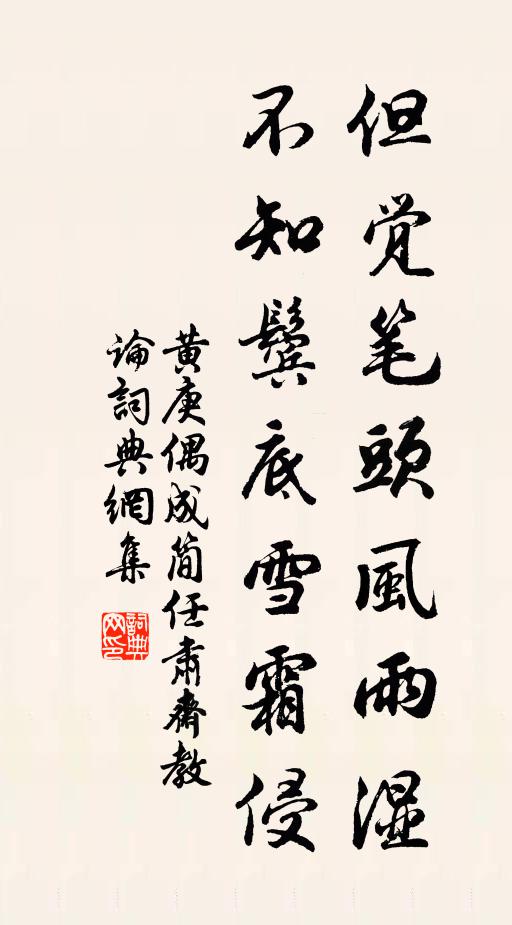 但觉笔頭風雨湿
不知鬓底雪霜侵
黄庚偶成简任肃齋教
论詞典網集
詞典网印